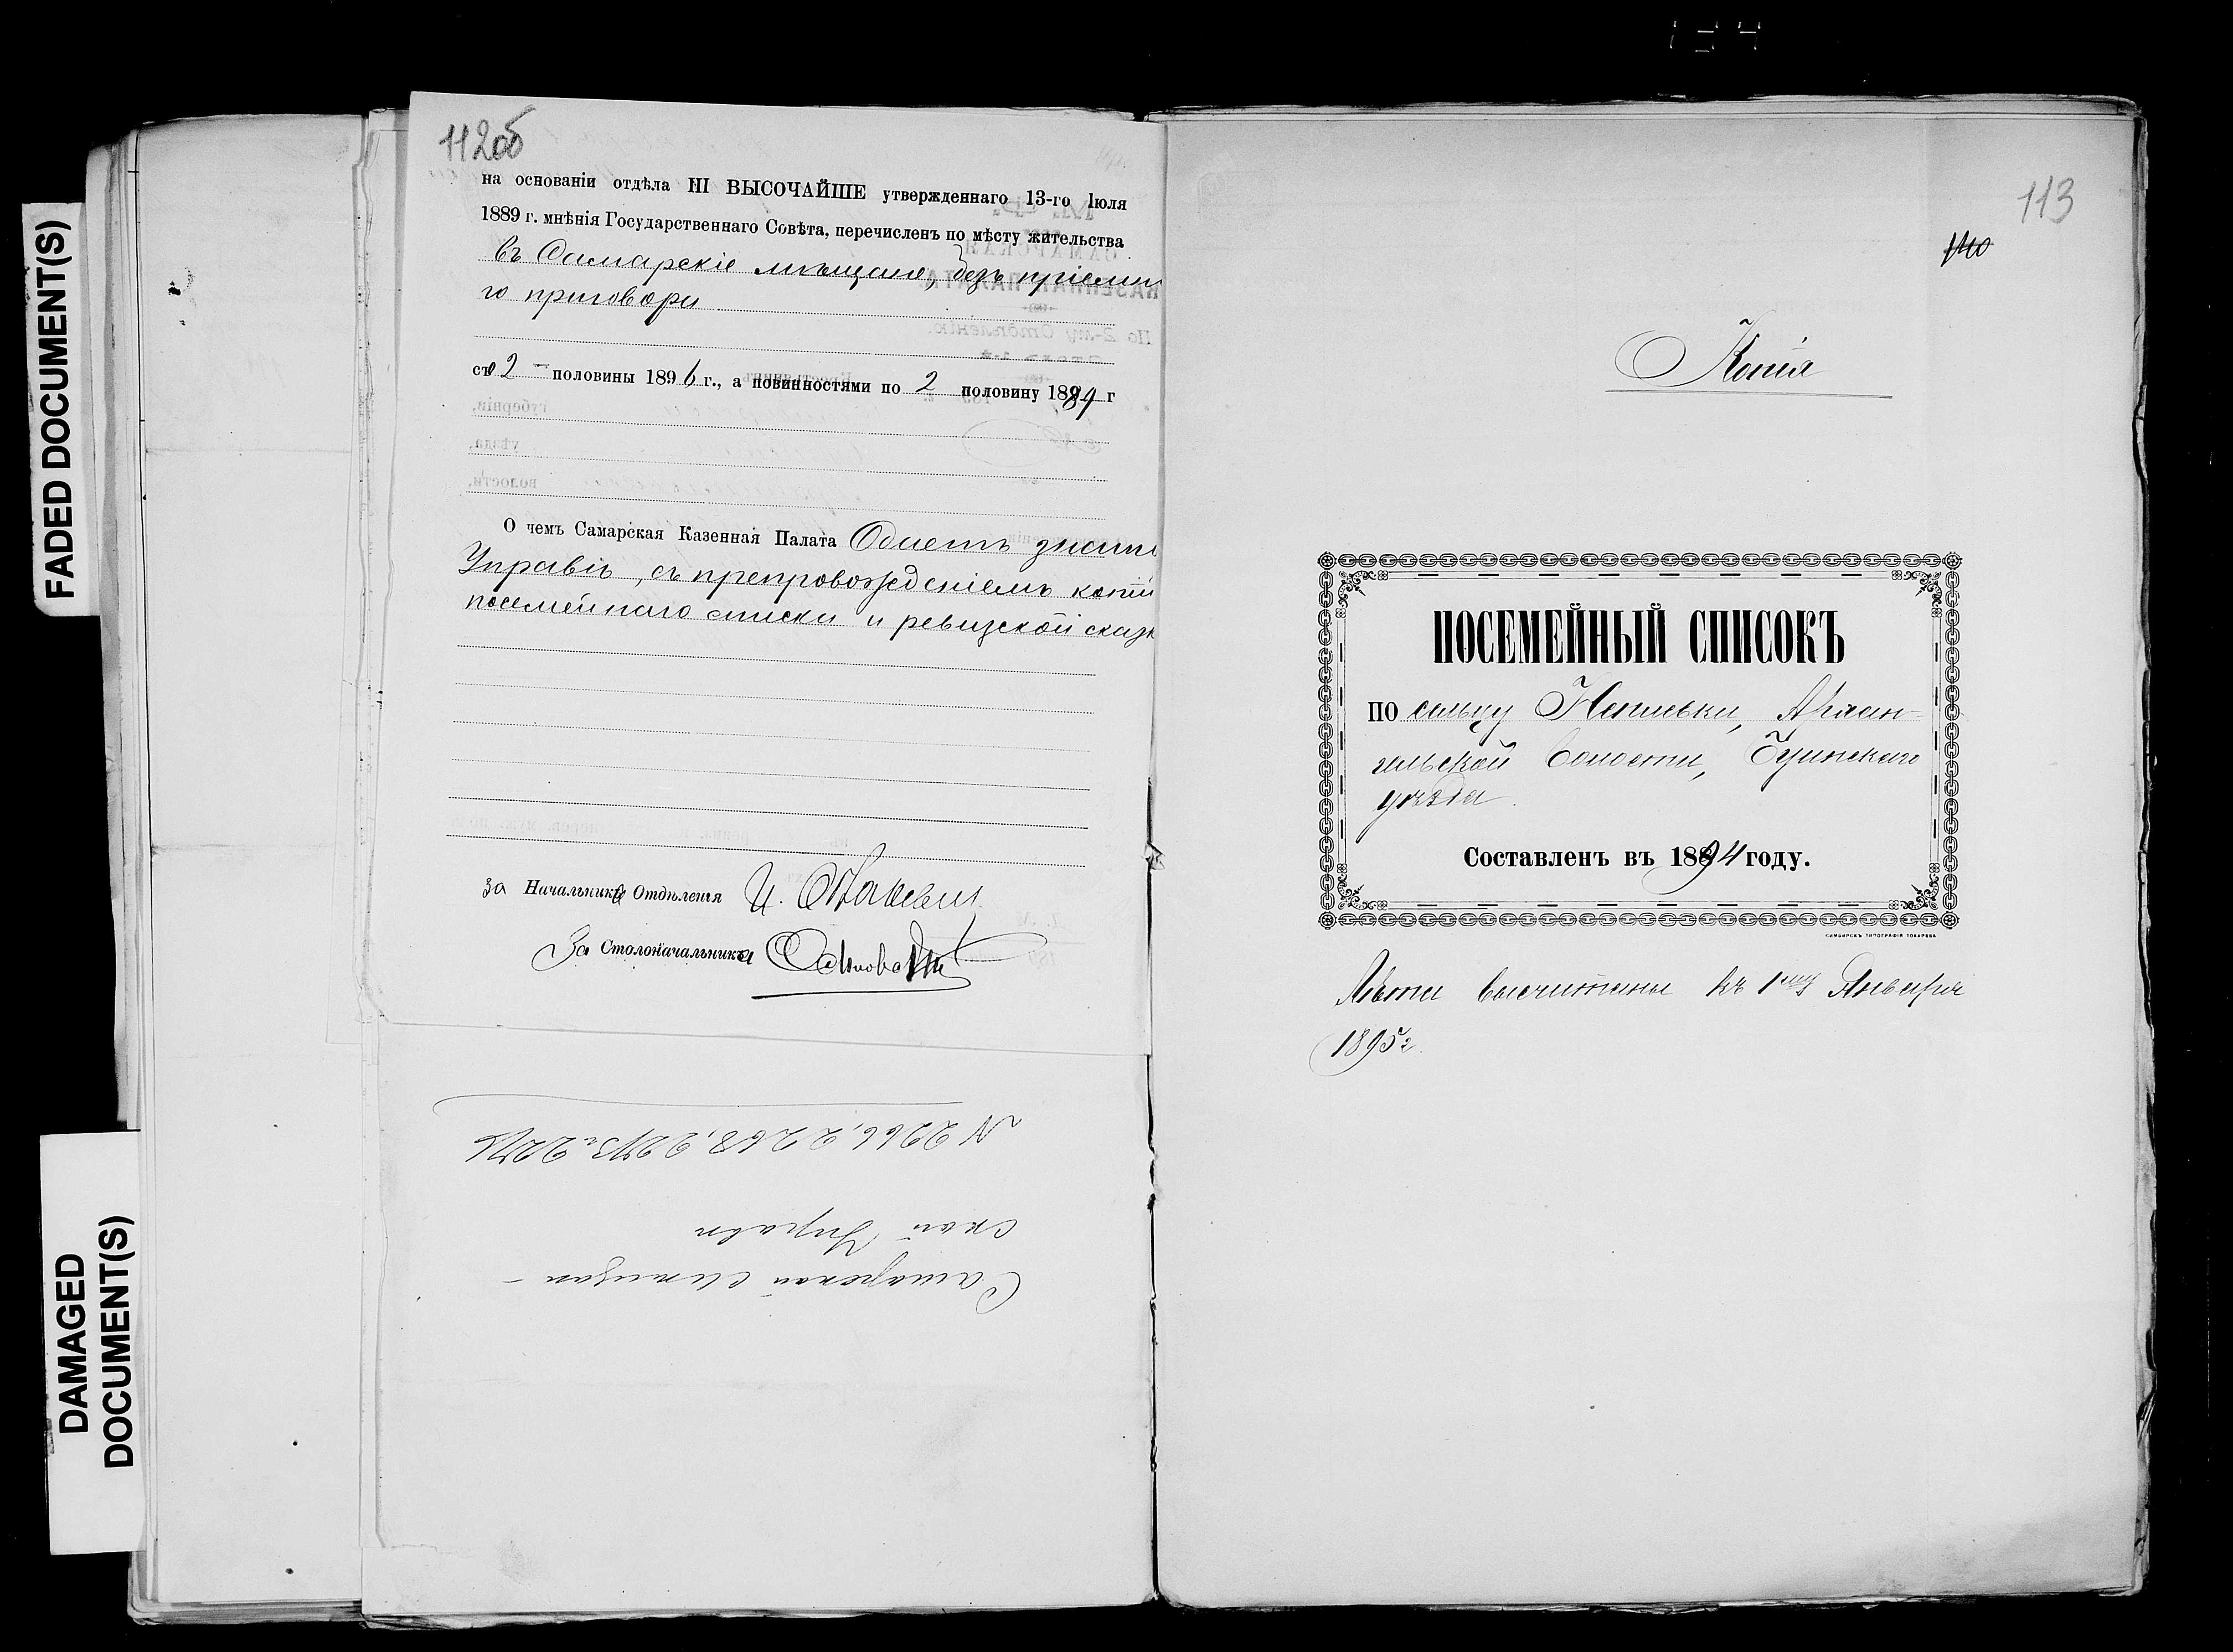 FADED DOCUMENT(S)
DAMAGED
DOCUMENT(S)
112об
на основаніи отдѣла III ВЫСОЧАЙШЕ утвержденнаго 13-го Іюля
1889 г. мнѣнія Государственнаго Совѣта, перечисленъ по мѣсту жительства
въ Самарскіе мѣщане, безъ пріемна
го приговора
со 2 половины 1896 г., а повинностями по 2 половину 1889 г
О чемъ Самарская Казенная Палата
Управѣ, съ препровожденіемъ копіи
посемейнаго списка и ревизской сказк
за Начальника Отдѣленія И.
За Столоначальника
N 2266, 2268, 2273
Самарской мѣщан-
ской Управѣ
113
110
Копія
ПОСЕМЕЙНЫЙ СПИСОКЪ
по сельцу Архан-
гельской волости,
уѣзда.
Составленъ въ 1894 году.
СИМБИРСКЪ ТИПОГРАФІЯ ТОКАРЕВА
Лѣта высчитаны къ 1му Января
1895 г.